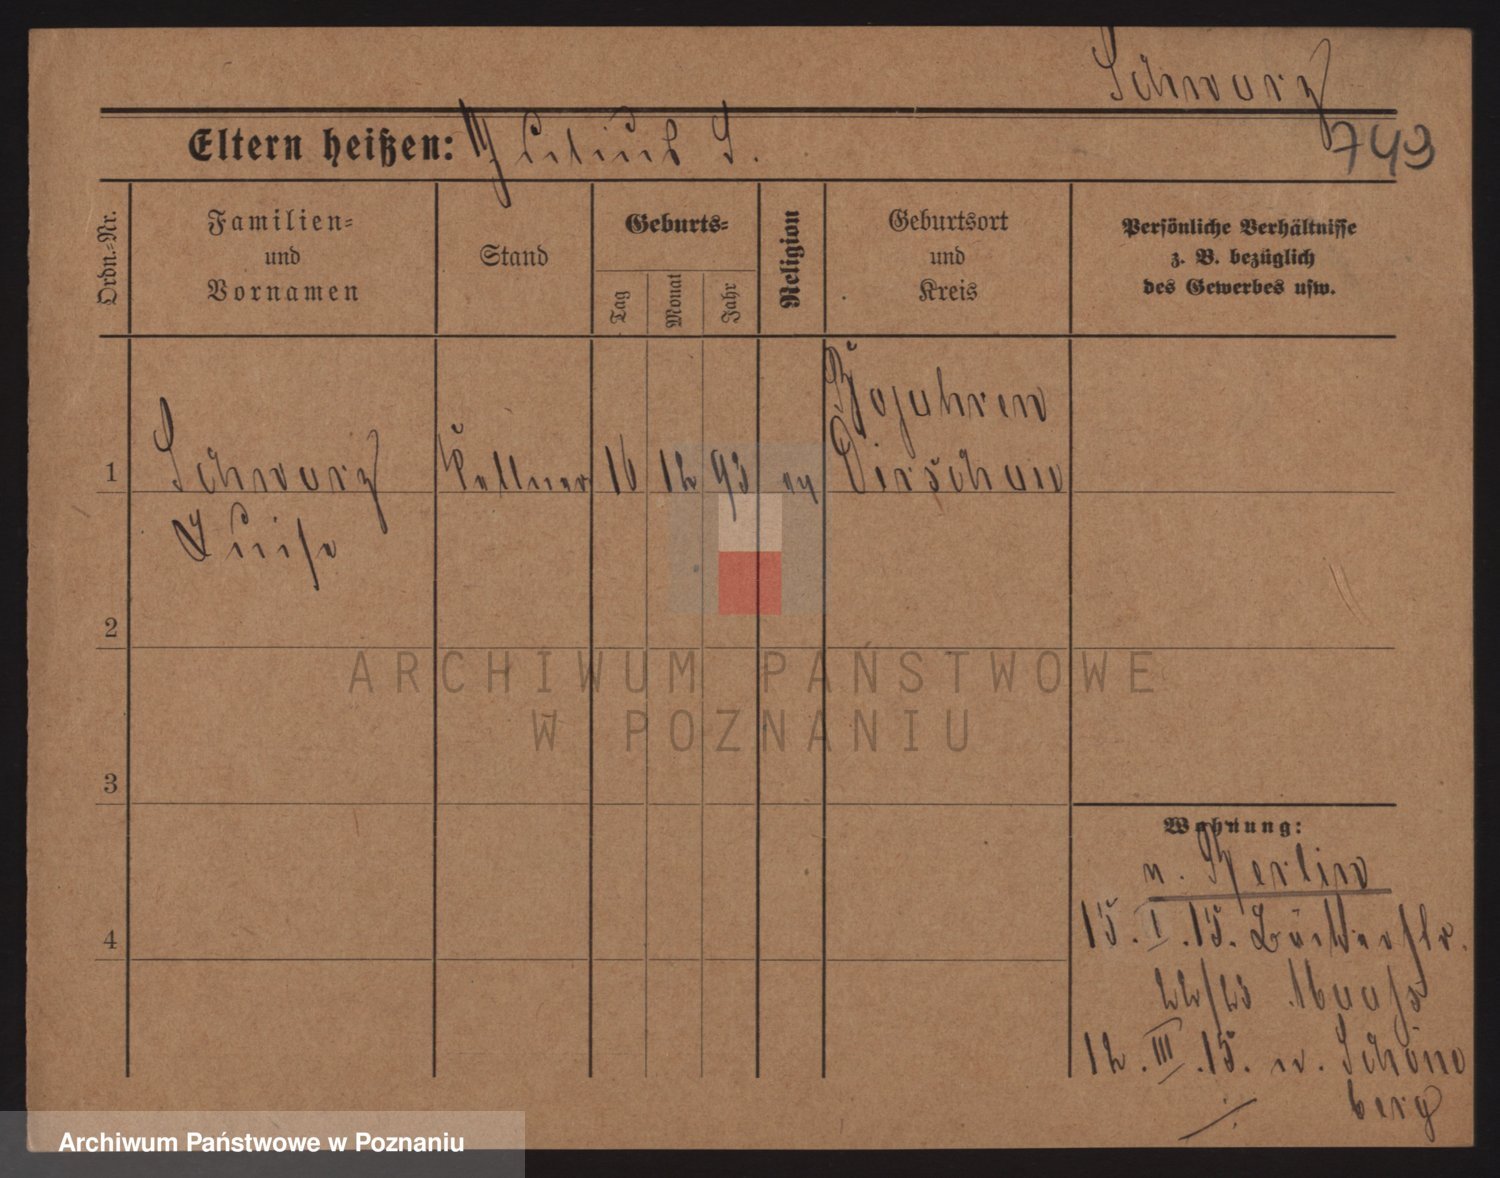 Schwarz
749
Eltern heißen: Julius S.
Ordn.=Nr.
Familien=
und
Vornamen
Stand
Geburts=
Tag
Monat
Jahr
Religion
Geburtsort
und
Kreis
Persönliche Verhältnisse
z. B. bezüglich
des Gewerbes usw.
1
Schwarz
Luise
Kellner
16
12
93
ev
Dirschau
2
3
4
Wohnung:
v. Berlin
15. I. 15. Bäckerstr.
22/23
12. III. 15. n. Schöne
berg
ARCHIWUM PAŃSTWOWE
W POZNANIU
Archiwum Państwowe w Poznaniu